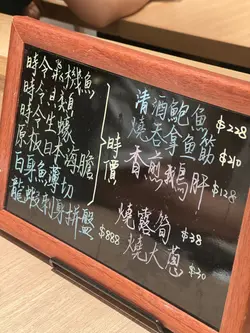 時令飛機魚
時令貝類
時令生蠔
原板日本海膽
白身魚薄切
時價
龍蝦刺身拼盤 $888
清酒鮑魚 $228
燒吞拿魚筋 $210
香煎鵝肝 $128
燒露筍 $38
燒大蔥 $30